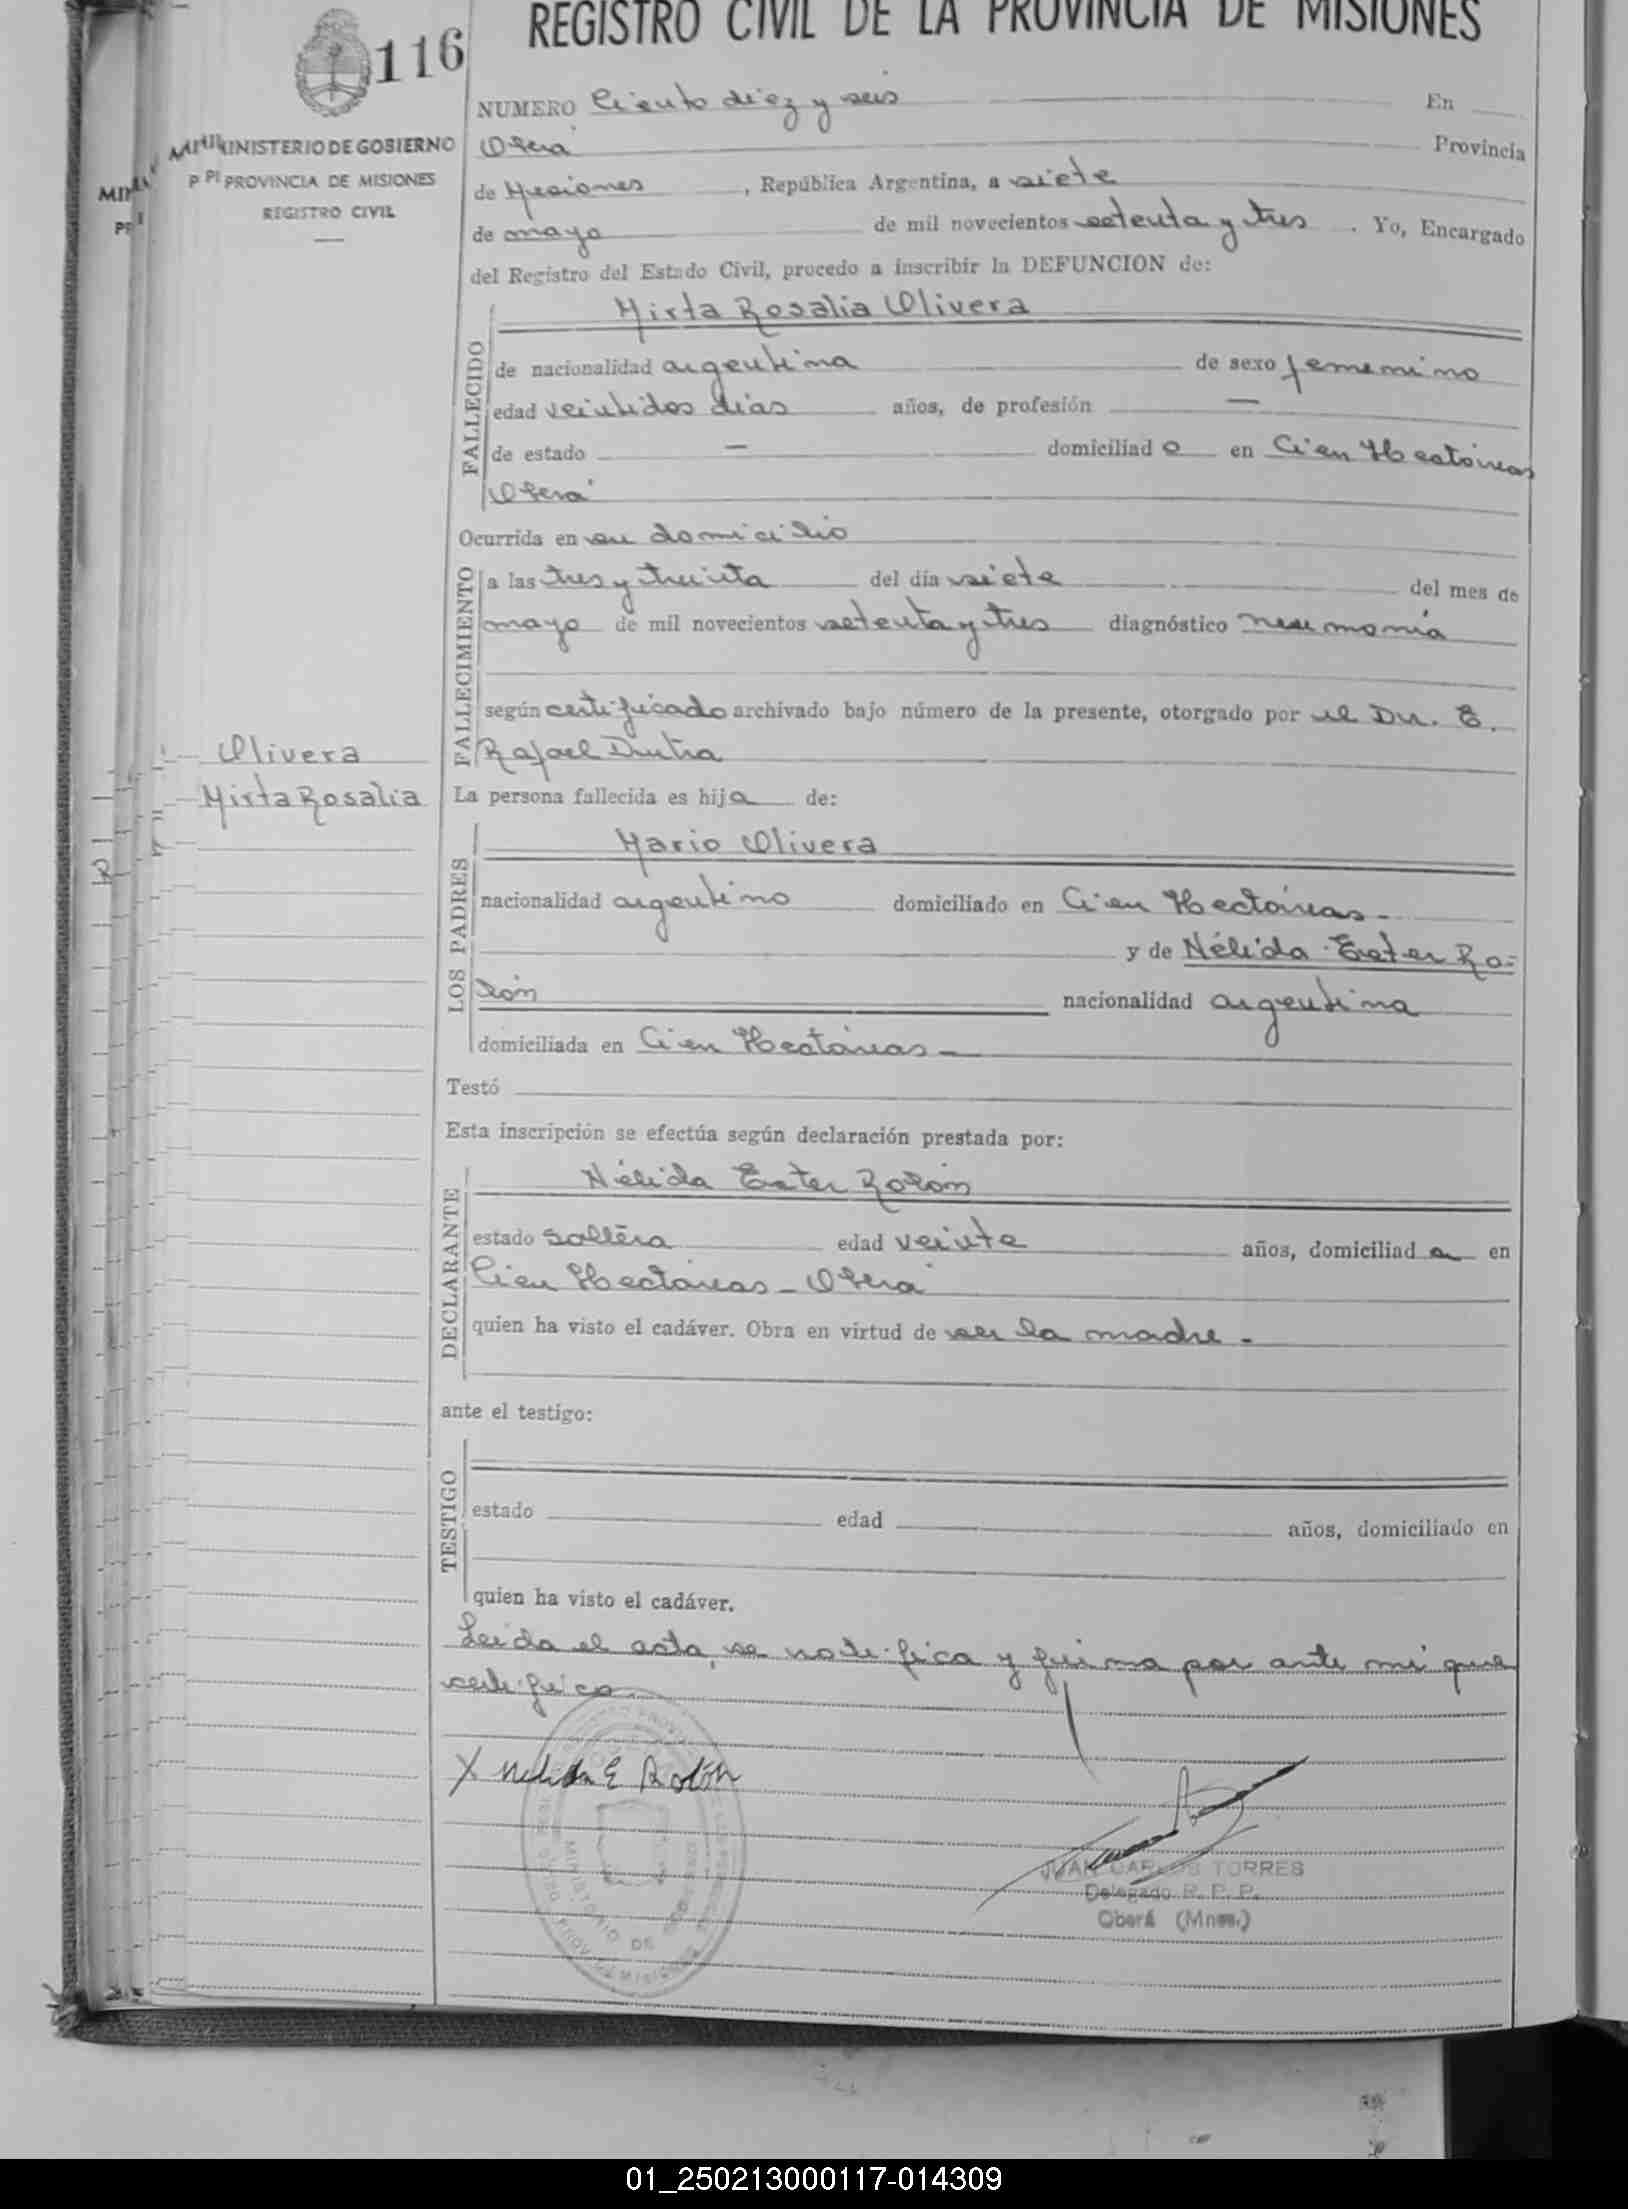 REGISTRO CIVIL DE LA PROVINCIA DE MISIONES
116
MINISTERIO DE GOBIERNO
PROVINCIA DE MISIONES
REGISTRO CIVIL
NUMERO Ciento diez y seis En
Oberá Provincia
de Misiones, República Argentina, a siete
de mayo de mil novecientos setenta y tres. Yo, Encargado
del Registro del Estado Civil, procedo a inscribir la DEFUNCION de:
FALLECIDO
Mirta Rosalia Olivera
de nacionalidad argentina de sexo femenino
edad veintidos dias años, de profesión —
de estado — domiciliad o en Cien Hectáreas
Oberá
Ocurrida en su domicilio
FALLECIMIENTO
a las tres y treinta del día siete del mes de
mayo de mil novecientos setenta y tres diagnóstico neumonía
según certificado archivado bajo número de la presente, otorgado por el Dr. E.
Rafael Dutra
Olivera
Mirta Rosalia
La persona fallecida es hija de:
LOS PADRES
Mario Olivera
nacionalidad argentino domiciliado en Cien Hectáreas-
y de Nélida Ester Ro-
lón nacionalidad argentina
domiciliada en Cien Hectáreas-
Testó
Esta inscripción se efectúa según declaración prestada por:
DECLARANTE
Nélida Ester Rolón
estado soltera edad veinte años, domiciliad a en
Cien Hectáreas - Oberá
quien ha visto el cadáver. Obra en virtud de ser la madre -
ante el testigo:
TESTIGO
estado edad años, domiciliado en
quien ha visto el cadáver.
Leida el acta, se notifica y firma por ante mi que
certifico
X Nelida E Rolón
MINISTERIO DE
JUAN CARLOS TORRES
Delegado R. P. P.
Oberá (Mnes.)
01_250213000117-014309